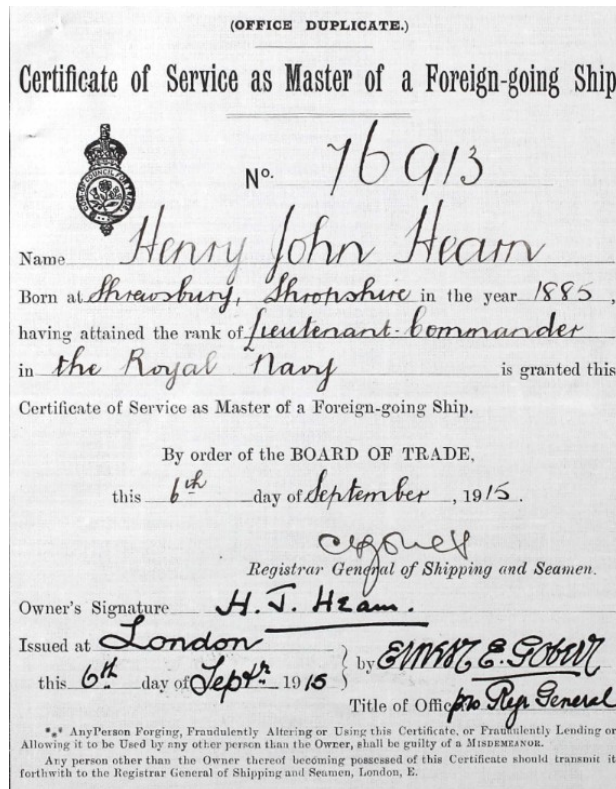 (OFFICE DUPLICATE.)
Certificate of Service as Master of a Foreign-going Ship
No. 76913
Name Henry John Hearn
Born at Shrewsbury, Shropshire in the year 1885,
having attained the rank of Lieutenant-Commander
in the Royal Navy is granted this
Certificate of Service as Master of a Foreign-going Ship.
By order of the BOARD OF TRADE,
this 6th day of September, 1915.
Registrar General of Shipping and Seamen.
Owner's Signature H. J. Hearn.
Issued at London
by Ernest E.
this 6th day of Septr. 1915
Title of Office pro Reg. General
*** AnyPerson Forging, Fraudulently Altering or Using this Certificate, or Fraudulently Lending or
Allowing it to be Used by any other person than the Owner, shall be guilty of a MISDEMEANOR.
Any person other than the Owner thereof becoming possessed of this Certificate should transmit it
forthwith to the Registrar General of Shipping and Seamen, London, E.